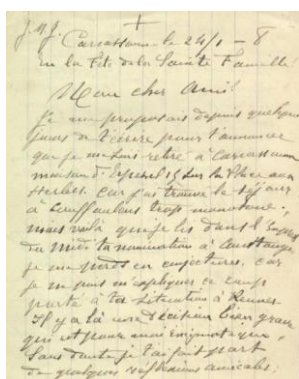 J. M. J. Carcassonne le 24/1 – 8
en la fête de la Sainte Famille
Mon cher Ami!
Je me proposais depuis quelques
jours de t'écrire pour t'annoncer
que je me suis retiré à Carcassonne
maison d' 15 sur la Place aux
Herbes. Car j'ai trouvé le séjour
à trop monotone;
mais voilà que je lis dans l'
du Midi ta nomination à
je me perds en conjectures, car
je ne puis m'expliquer ce
 à ta situation à Rennes
Il y a là une décision bien grave
qui est pour moi énigmatique.
Sans doute je t'ai fait part
de quelques réflexions amicales;